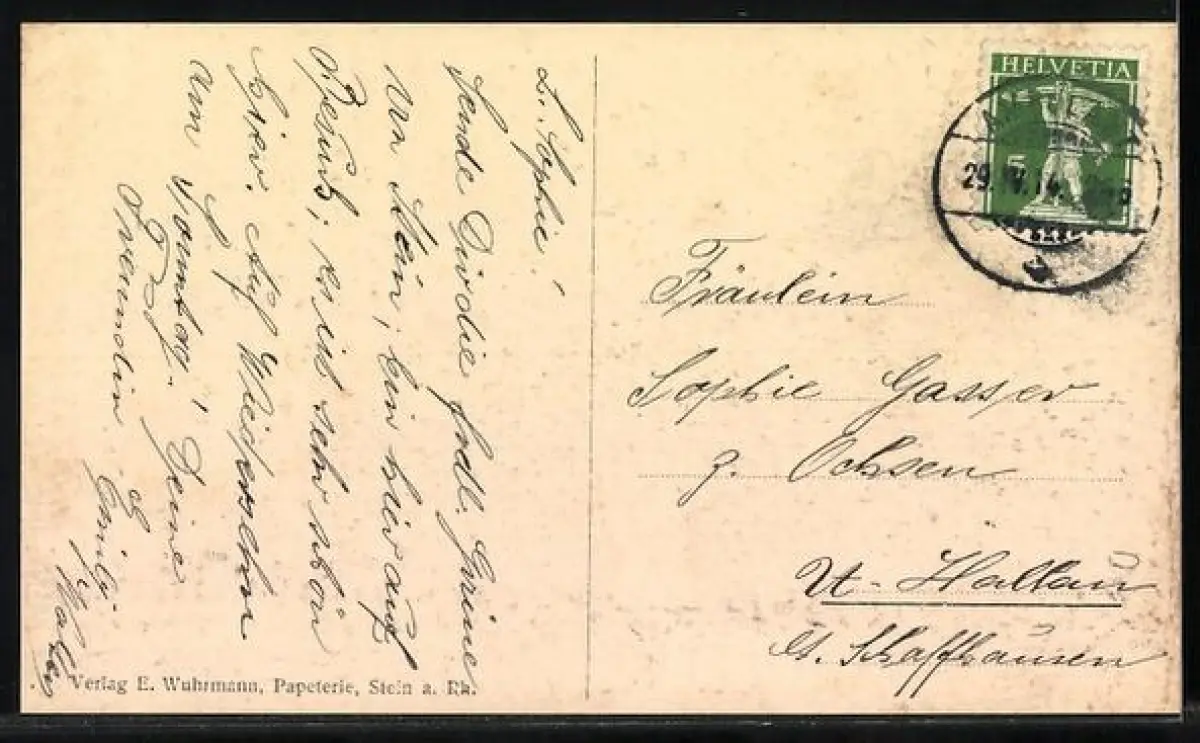 L. Sophie!
Sende Dir die frdl. Grüsse
von Stein, bin hier auf
Besuch; es ist sehr schön
hier. Auf Wiedersehn
am Sonntag! Deine
Freundin
Emily
HELVETIA
5
29.IV.14.
Fräulein
Sophie Gasser
z. Ochsen
U-Hallau
Ct. Schaffhausen
Verlag E. Wuhrmann, Papeterie, Stein a. Rh.